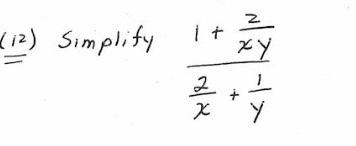 (12) Simplify (1 + 2/(xy)) / (2/x + 1/y)